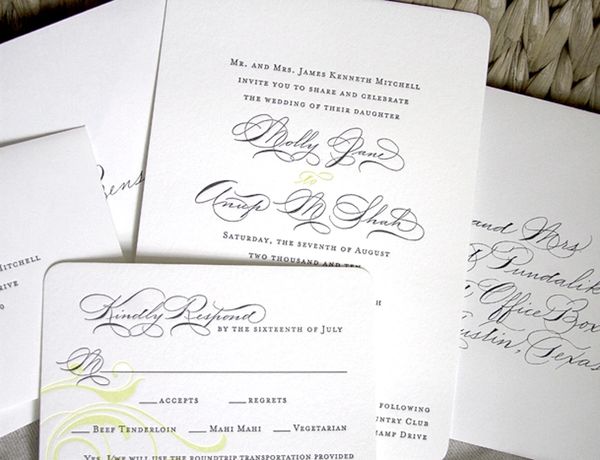 Mr. and Mrs. James Kenneth Mitchell
invite you to share and celebrate
the wedding of their daughter
Molly Jane
to
Anup M Shah
Saturday, the seventh of August
two thousand and ten
following
Country Club
champ Drive
Kindly Respond
by the sixteenth of July
M
accepts regrets
Beef Tenderloin Mahi Mahi Vegetarian
Yes, I/we will use the roundtrip transportation provided
Mitchell
Drive
and Mrs
Fundalik
Office Box
Austin, Texas